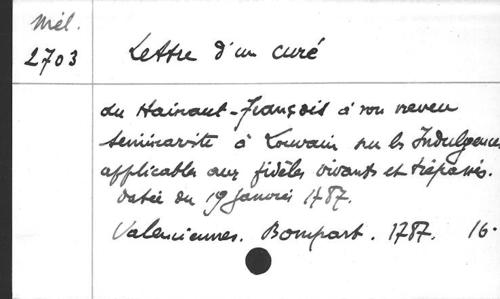 Mél.
2703
Lettre d'un curé
du Hainaut-françois à son neveu
séminariste à Louvain sur les Indulgences
applicables aux fidèles vivants et trépassés.
Datée du 19 janvier 1787.
Valenciennes. Bompart. 1787. 16.